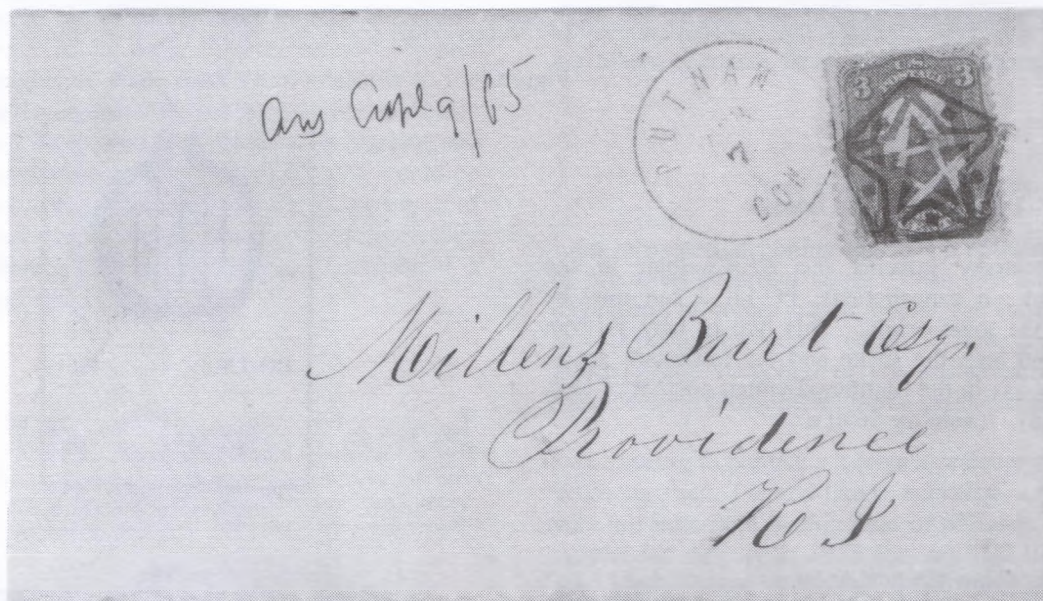 Ans April 9/65
PUTNAM
7
CON
3 3
Millens Burt Esqr
Providence
R I